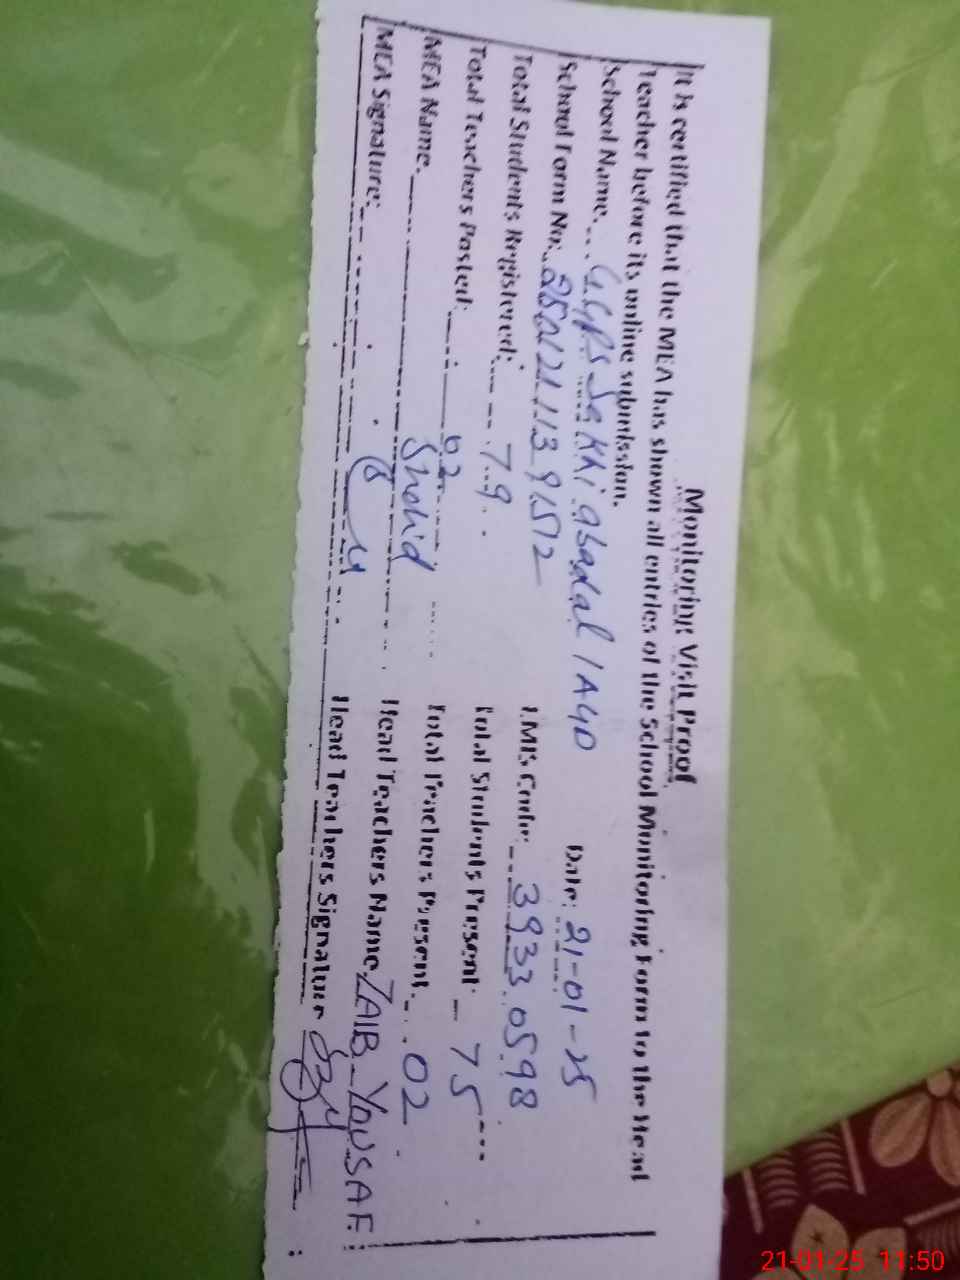 Monitoring Visit Proof
It is certified that the MEA has shown all entries of the School Monitoring Form to the Head
Teacher before its online submission.
School Name. GGPS Sakhi abadal /A40 Date: 21-01-25
School Form No: EMIS Code: 39330598
Total Students Registered: 79 Total Students Present: 75
Total Teachers Posted: 02 Total Teachers Present. 02
MEA Name. Shahid Head Teachers Name ZAIB YOUSAF
MEA Signature: Head Teachers Signature
21-01-25 11:50